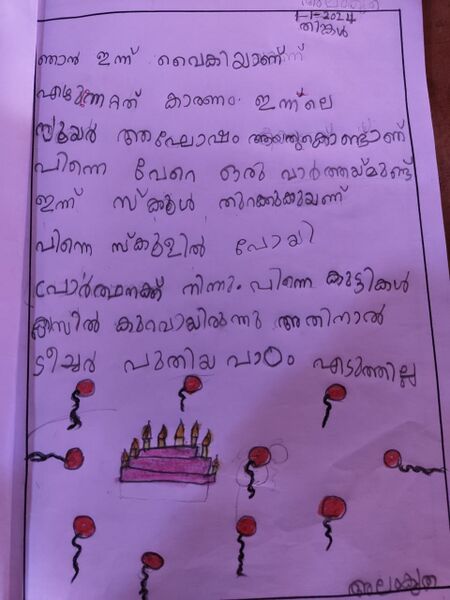 1-1-2024
തിങ്കൾ
ഞാൻ ഇന്ന് വൈകിയാണ്
എഴുന്നേറ്റത് കാരണം ഇന്നലെ
ന്യൂയർ ആഘോഷം ആയതുകൊണ്ടാണ്
പിന്നെ വേറെ ഒരു വാർത്തയ്മുണ്ട്
ഇന്ന് സ്ക്കൂൾ തുറക്കുകയണ്
പിന്നെ സ്കൂളിൽ പോയി
പ്രാർത്ഥനക്ക് നിന്നും പിന്നെ കുട്ടികൾ
ക്ലസിൽ കുറവായിരുന്നു അതിനാൽ
ടീച്ചർ പുതിയ പാഠം എടുത്തില്ല
അലംകൃത